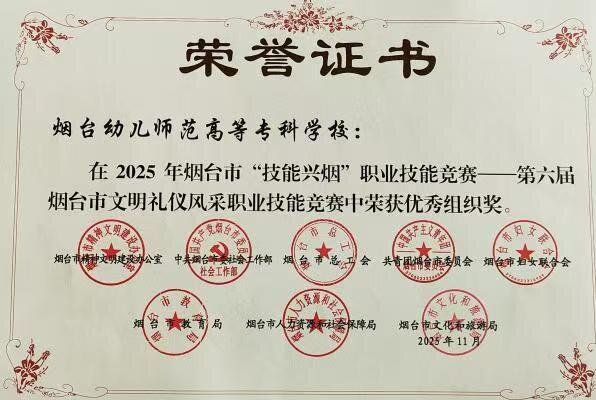 荣誉证书
烟台幼儿师范高等专科学校：
在 2025 年烟台市“技能兴烟”职业技能竞赛——第六届
烟台市文明礼仪风采职业技能竞赛中荣获优秀组织奖。
烟台市精神文明建设办公室 中共烟台市委社会工作部 烟台市总工会 共青团烟台市委员会 烟台市妇女联合会
烟台市教育局 烟台市人力资源和社会保障局 烟台市文化和旅游局
2025年11月